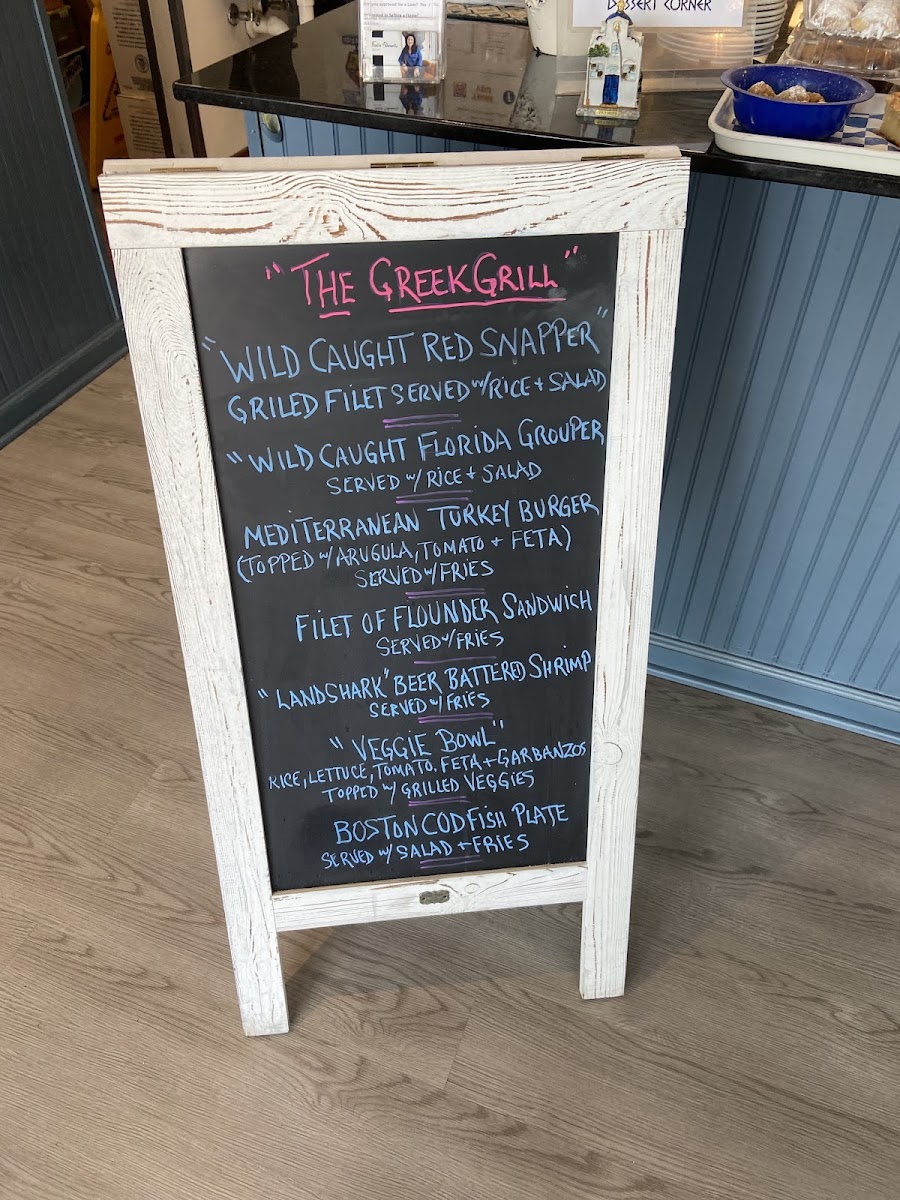 DESSERT CORNER
"THE GREEK GRILL"
"WILD CAUGHT RED SNAPPER"
GRILED FILET SERVED W/RICE + SALAD
"WILD CAUGHT FLORIDA GROUPER
SERVED W/ RICE + SALAD
MEDITERRANEAN TURKEY BURGER
(TOPPED W/ ARUGULA, TOMATO + FETA)
SERVED W/FRIES
FILET OF FLOUNDER SANDWICH
SERVED W/FRIES
"LANDSHARK" BEER BATTERED SHRIMP
SERVED W/ FRIES
"VEGGIE BOWL"
RICE, LETTUCE, TOMATO. FETA + GARBANZOS
TOPPED W/ GRILLED VEGGIES
BOSTON COD FISH PLATE
SERVED W/ SALAD + FRIES